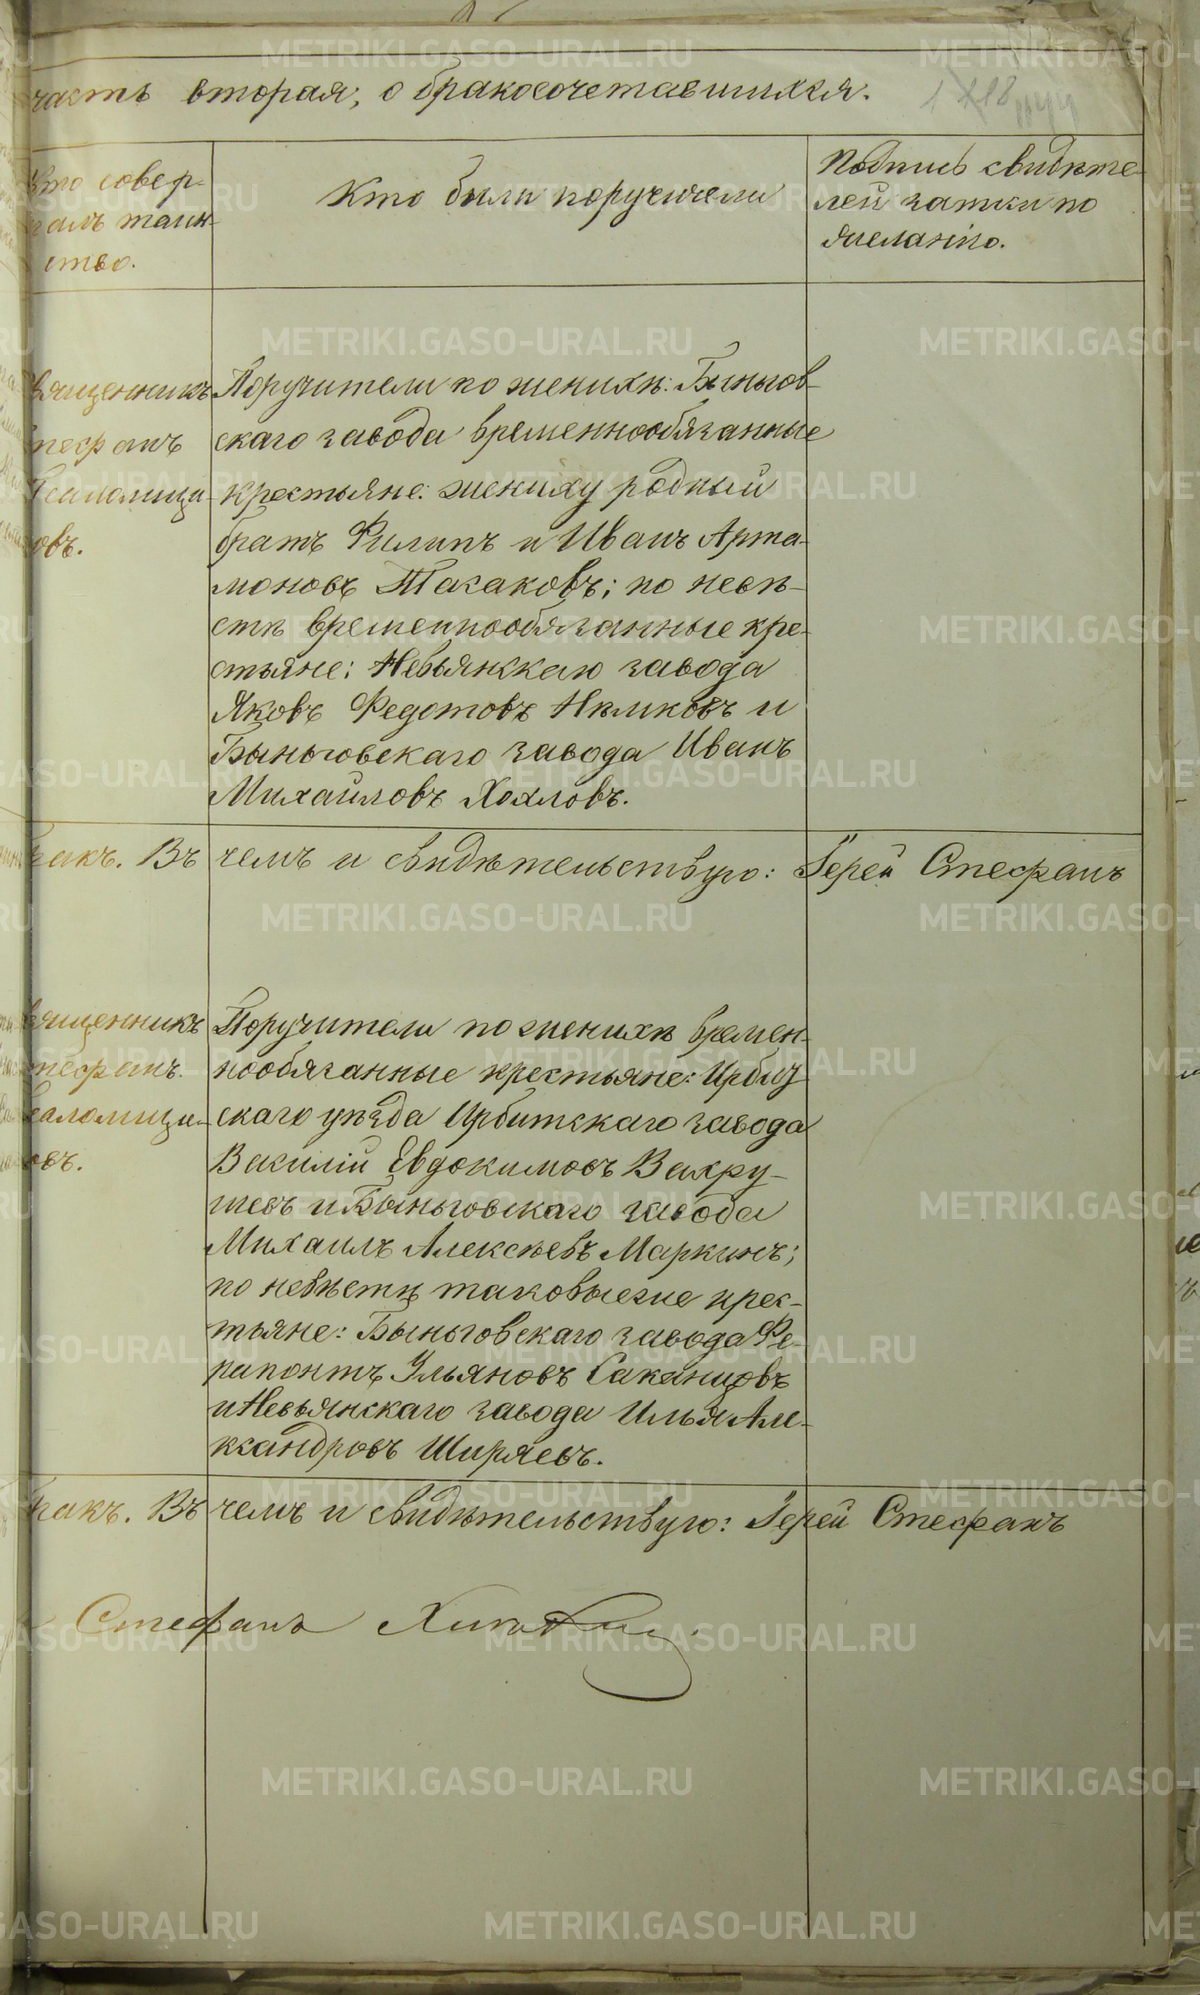 часть вторая, о бракосочетавшихся.
Кто совер-
шалъ таин-
ство.
Кто были поручители
Подпись свидѣте-
лей записи по
желанію.
Священникъ
Стефанъ
овъ.
Поручители по женихѣ: Быньгов-
скаго завода временнообязанные
крестьяне: жениху родный
братъ Филипъ и Иванъ Арта-
моновъ Такаковъ; по невѣ-
стѣ временнообязанные кре-
стьяне: Невьянскаго завода
Яковъ Федотовъ Нѣмковъ и
Быньговскаго завода Иванъ
Михайловъ Хохловъ.
бракъ. Въ чемъ и свидѣтельствую: Іерей Стефанъ
Священникъ
Стефанъ
овъ.
Поручители по женихѣ времен-
нообязанные крестьяне: Ирбит
скаго уѣзда Ирбитскаго завода
Василій Евдокимовъ Вахру-
шевъ и Быньговскаго завода
Михаилъ Алексѣевъ Маркинъ;
по невѣстѣ таковыеже крес-
тьяне: Быньговскаго завода Фе-
рапонтъ Ульяновъ Саканцовъ
и Невьянскаго завода Илья Але-
ксандровъ Ширяевъ.
бракъ. Въ чемъ и свидѣтельствую: Іерей Стефанъ
Стефанъ
METRIKI.GASO-URAL.RU